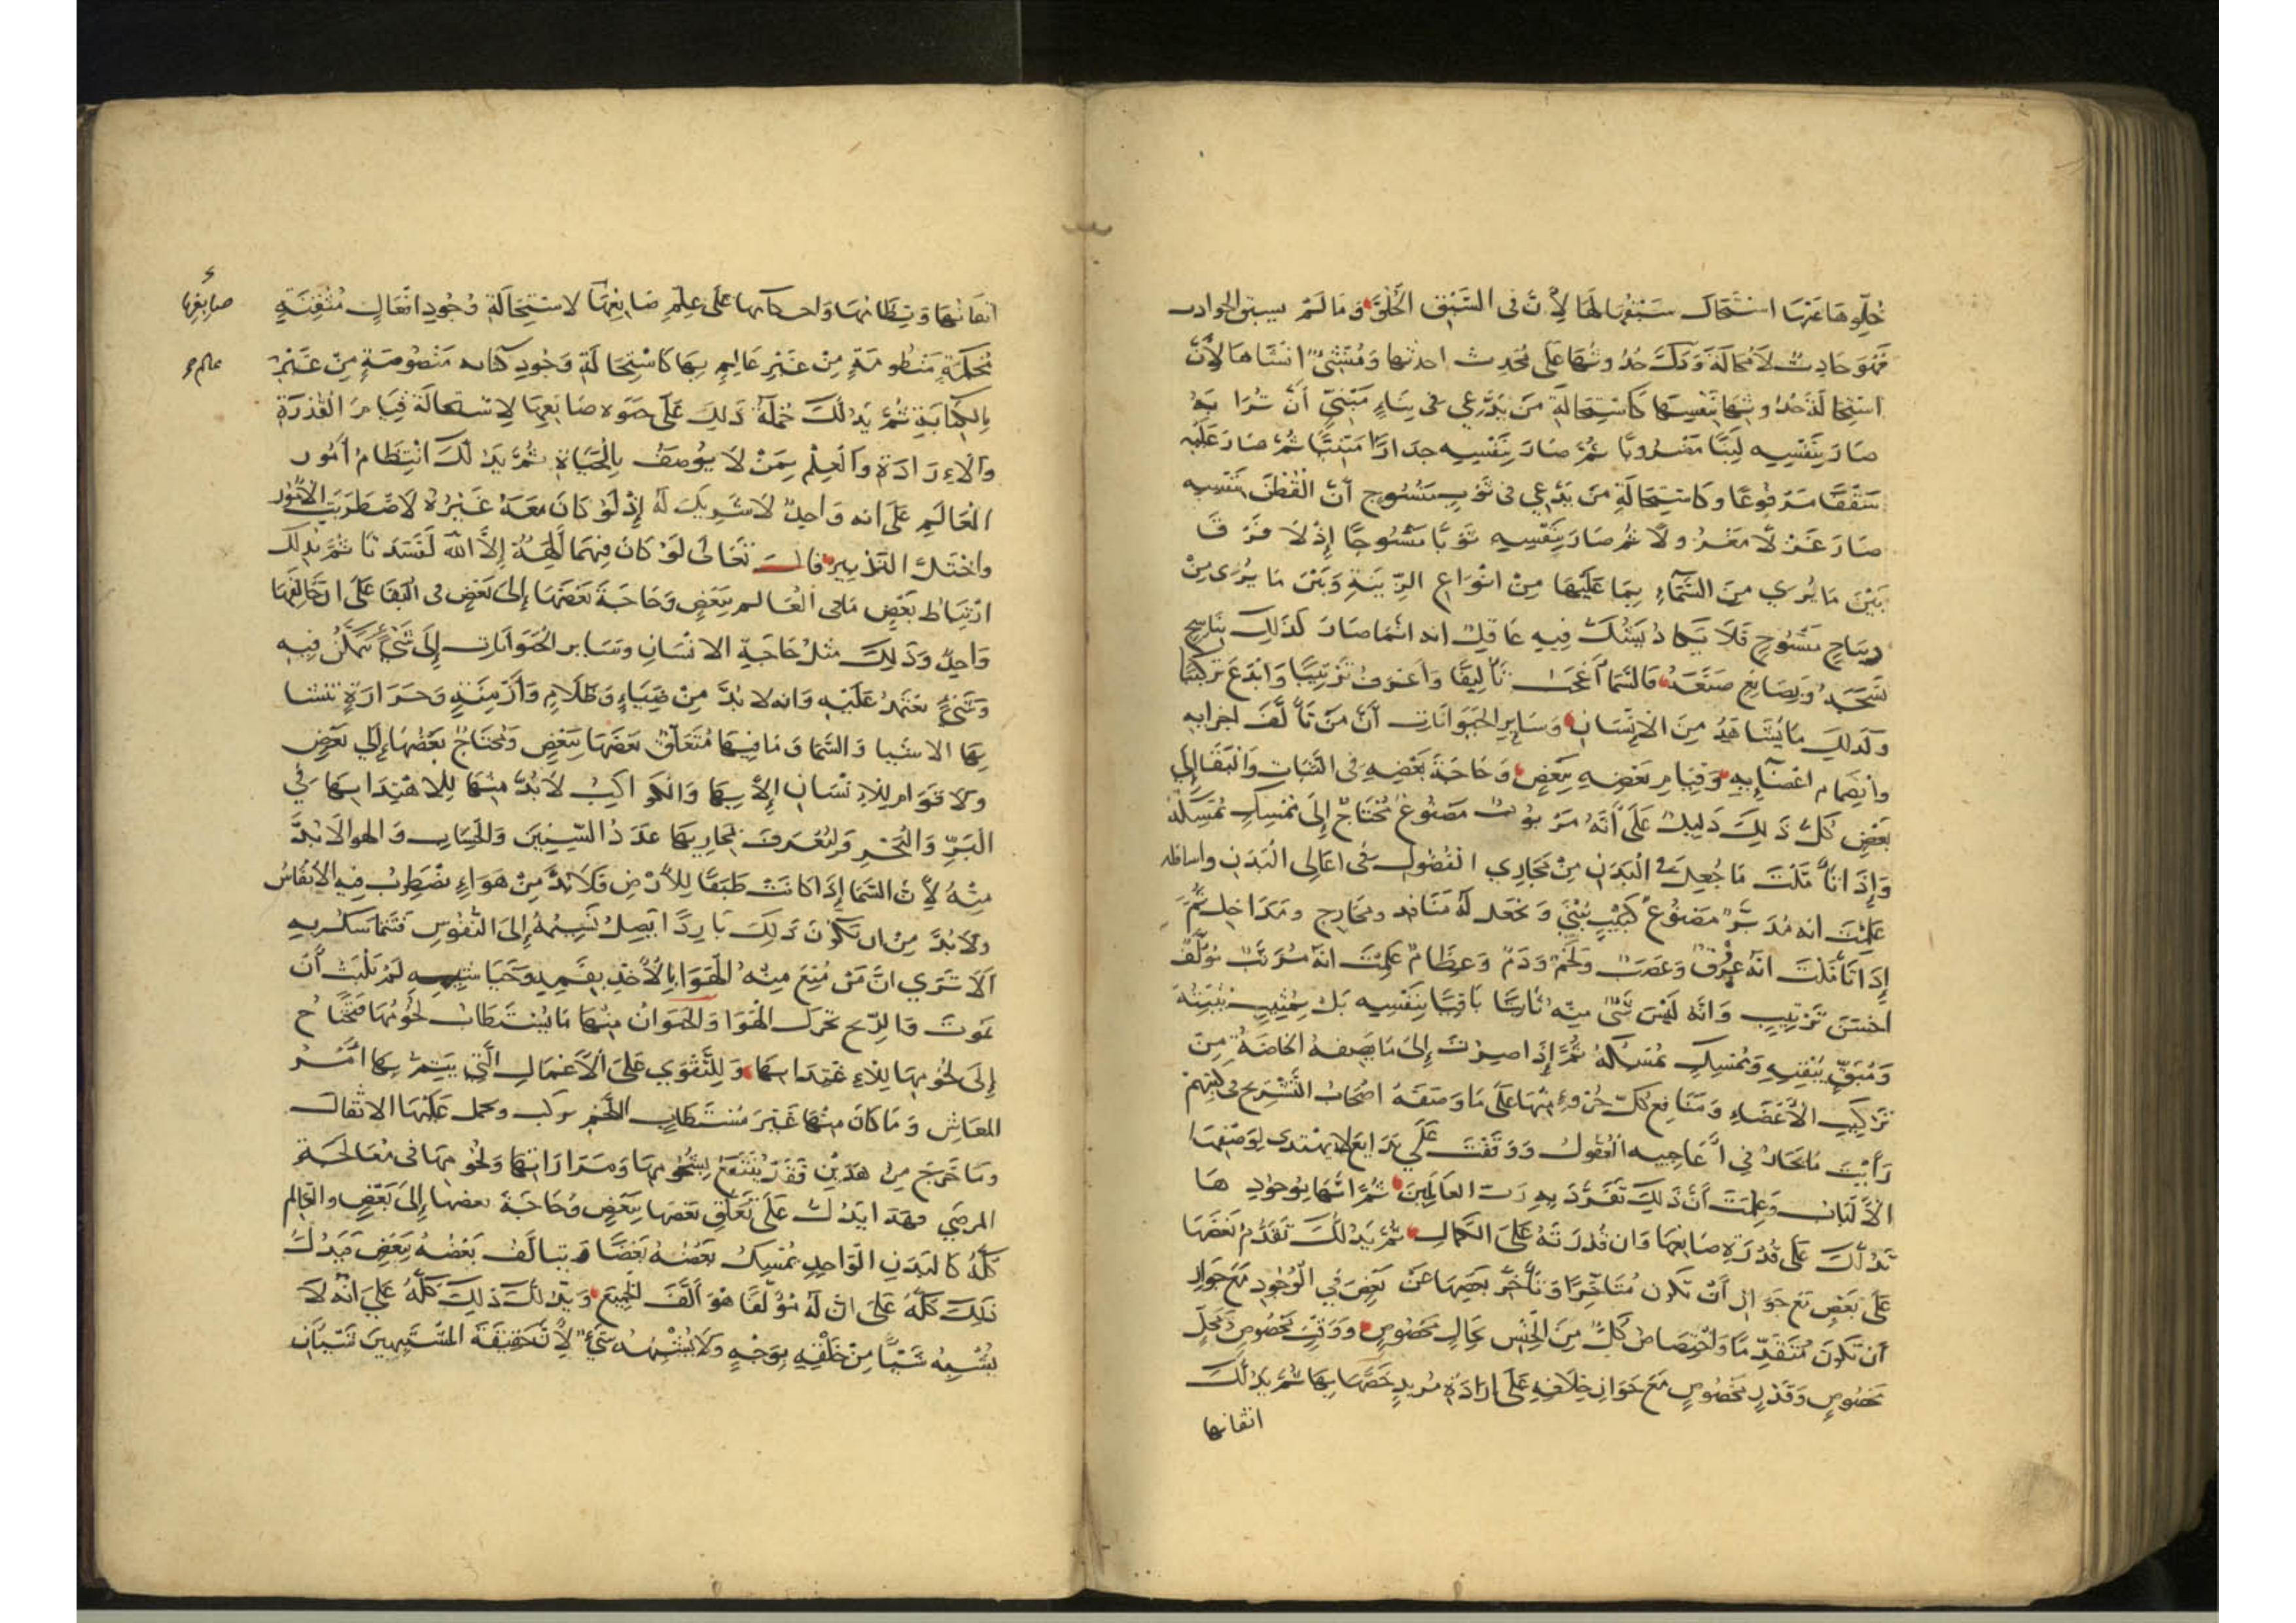 خُلِّوهَا عَنْهَا اسْتَحَالَ سَبْقُهَا لَهَا لِأَنَّ فِى السَّبْقِ الْخُلُوَّ وَمَا لَمْ يسبق الحوادث
فَهُوَ حَادِثٌ لَا مَحَالَةَ وَدَلَّ حُدُوثُهَا عَلَى مُحْدِثٍ احدثها وَمُنْشِئٍ انْشَاهَا لِأَنَّ
اسْتِحَالَةَ حُدُوثِهَا بِنَفْسِهَا كَاسْتِحَالَةِ مَنْ يَدَّعِي فى بِنَاءٍ مَبْنِيٍّ أَنَّ تُرَابَهُ
صَارَ بِنَفْسِهِ لَبِنًا مَضْرُوبًا ثُمَّ صَارَ بِنَفْسِهِ جدارًا مَبْنِيًّا ثُمَّ صَارَ عَلَيْهِ
سَقْفًا مَرْفُوعًا وكَاسْتِحَالَةِ مَنْ يَدَّعِي فى ثَوْبٍ مَنْسُوج أَنَّ الْقُطْنَ بِنَفْسِهِ
صَارَ غَزْلًا مَغْزُولًا ثُم صَارَ بِنَفْسِهِ ثَوْبًا مَنْسُوجًا إِذْ لَا فَرْقَ
بَيْنَ مَا يُرَي مِنَ السَّمَاءِ بِمَا عَلَيْهَا مِنْ انْوَاعِ الزِّينَةِ وَبَيْنَ مَا يُرَى مِنْ
دِيبَاجٍ مَنْسُوجٍ فَلَا يَكَادُ يَشُكُّ فِيهِ عَاقِلٌ انه انَّمَا صَارَ كَذَلِكَ بِنَاسِجٍ
نَسَجَهُ وَبِصَانِعٍ صَنَعَهُ فَالسَّمَا أَعْجَبُ تَأْلِيفًا وَأَغْرَبُ تَرْتِيبًا وَابْدَعُ تَرْكِيبًا
وكَذَلِكَ مَا يُشَاهَدُ مِنَ الْإِنْسَانِ وَسَايِرِ الْحَيَوَانَاتِ أَنَّ مَنْ تَأَلَّفَ اجزايه
وانْضِمَام اعْضَآئِهِ وَقِيَامِ بَعْضِهِ بِبَعْضٍ وَحَاجَةِ بَعْضِهِ فِى الثَّبَاتِ وَالْبَقَا إِلَى
بَعْضٍ كُلُّ ذَلِكَ دَلِيلٌ عَلَى أَنَّهُ مَرْبُوبٌ مَصْنُوعٌ مُحْتَاجٌ إِلَى مُمْسِكٍ يُمْسِكُهُ
وَإِذَا تَأَمَّلْتَ مَا جُعِلَ فِى الْبَدَنِ مِنْ مَجَارِي الْفُضُولِ فِى اعَالِى الْبَدَنِ واسافله
عَلِمْتَ انه مُدَبَّرٌ مَصْنُوعٌ كَبَيْتٍ بُنِيَ وَجعل لَهُ مَنَافِذ ومَخَارِج ومَدَاخِل ثُمَّ
إِذَا تَأَمَّلْتَ انَّهُ عُرُوقٌ وَعَصَبٌ وَلَحْمٌ وَدَمٌ وَعِظَامٌ عَلِمْتَ انَّهُ مُرَتَّبٌ مُؤَلَّفٌ
احْسَنَ تَرْتِيبٍ وَانَّهُ لَيْسَ شَىْءٌ مِنْهُ ثَابِتًا بَاقِيًا بِنَفْسِهِ بَلْ بِمُثْبِتٍ يُثْبِتُهُ
وَمُبَقٍّ يُبْقِيهِ وَمُمْسِكٍ يُمْسِكُهُ ثُمَّ إِذَا صِرْتَ إِلَى مَا يَصِفُهُ الْخَاصَّةُ مِنْ
تَرْكِيبِ الْأَعْضَاءِ وَمَنَافِعِ كُلِّ جُزْءٍ مِنْهَا عَلَى مَا وَصَفَهُ اصْحَابُ التَّشْرِيحِ فى كُتُبِهِمْ
رَأَيْتَ مَا تَحَارُ فِي أَعَاجِيبِهِ الْعُقُولُ وَوَقَفْتَ عَلَى بَدَايِعَ لَا يَهْتَدِى لِوَصْفِهَا
الْأَلْبَابُ وَعَلِمْتَ أَنَّ ذَلِكَ تَفَرَّدَ بِهِ رَبُّ الْعَالَمِينَ ثُمَّ انَّهَا بِوُجُودِهَا
تَدُلُّكَ عَلَى قُدْرَةِ صَانِعِهَا وَان قُدْرَتَهُ عَلَى الْكَمَالِ ثُمَّ يَدُلُّكَ تَقَدُّمُ بَعْضِهَا
عَلَى بَعْضٍ مَعَ جَوَازِ أَنْ تَكُون مُتَاخِّرًا وَتَأَخُّرُ بَعْضِهَا عَنْ بَعْضٍ فِي الْوُجُودِ مَعَ جَوَازِ
أَنْ تَكُونَ مُتَقَدِّمًا وَاخْتِصَاصُ كُلٍّ مِنَ الْجِنْسِ بِحَالٍ مَخْصُوصٍ وَوَقْتٍ مَخْصُوصٍ وَمَحَلٍّ
مَخْصُوصٍ وَقَدْرٍ مَخْصُوصٍ مَعَ جَوَازِ خِلَافِهِ عَلَى ارَادَةِ مُرِيدٍ خَصَّهَا بِهَا ثُمَّ يَدُلُّكَ
اتقانها
اتقَانُهَا وَنِظَامُهَا وَاحكامُها عَلَى عِلْمِ صَانِعِهَا لاسْتِحَالَةِ وُجُودِ افْعَالٍ مُتْقَنَةٍ
صَانِعِهَا
مُحْكَمَةٍ مَنْظُومَةٍ مِنْ غَيْرِ عَالِمٍ بِهَا كَاسْتِحَالَةِ وُجُودِ كتابه مَنْظُومَةٍ مِنْ غَيْرِ
عالم صح
بِالْكِتَابَةِ ثُمَّ يَدُلُّكَ جُمْلَةُ ذَلِكَ عَلَى حَيَوه صَانِعِهَا لِاسْتحَالَةِ قِيَامِ الْقُدْرَةِ
وَالْاِرَادَةِ وَالْعِلْمِ بِمَنْ لَا يُوصَفُ بِالْحَيَاةِ ثُمَّ يَدُلُّكَ انْتِظَامُ أُمُورِ
الْعَالَمِ عَلَى انه وَاحِدٌ لَا شَرِيكَ لَهُ إِذْ لَوْ كَانَ مَعَهُ غَيْرُهُ لَاضْطَرَبَتِ الْأُمُورُ
واخْتَلَّ التَّدْبِيرُ قال تَعَالَى لَوْ كَانَ فِيهِمَا آلِهَةٌ إِلَّا اللهُ لَفَسَدَتَا ثُمَّ يَدُلُّكَ
ارْتِبَاط بَعْضِ مَا فِى الْعَالَمِ بِبَعْضٍ وَحَاجَةُ بَعْضِهَا إِلَى بَعْضٍ فِى الْبَقَا عَلَى ان خَالِقَهَا
وَاحِدٌ وَذَلِكَ مِثْلُ حَاجَةِ الْانْسَانِ وَسَايِرِ الْحَيَوَانَاتِ إِلَى شَيْءٍ يَتَمَكَّنُ فِيهِ
وَشَيْءٍ يَعْتَمِدُ عَلَيْهِ وَانه لَا بُدَّ مِنْ ضِيَاءٍ وَظَلَامٍ وَأَزْمِنَةٍ وَحَرَارَةٍ تنشا
بِهَا الاشيا وَالسَّمَا وَمَا فِيهَا مُتَعَلِّقٌ بَعْضُهَا بِبَعْضٍ وَيَحْتَاجُ بَعْضُهَا إِلَى بَعْضٍ
ولَا قَوَامَ لِلْاِنْسَانِ إِلَّا بِهَا وَالْكَوَاكِبُ لَابُدَّ مِنْهَا لِلْاهْتِدَا بِهَا فِي
الْبَرِّ وَالْبَحْرِ وَلِيُعْرَفَ بِمَجَارِيهَا عَدَدُ السِّنِينَ وَالْحِسَابِ وَالهوا لَا بُدَّ
مِنْهُ لِأَنَّ السَّمَا إِذَا كَانَتْ طَبَقًا لِلْأَرْضِ فَلَا بُدَّ مِنْ هَوَاءٍ يَضْطَرِبُ فِيهِ الْأَنْفَاسُ
ولَا بُدَّ مِنْ ان تَكُونَ ذَلِكَ بَارِدًا يَصِلُ نَسِيمُهُ إِلَى النُّفُوسِ فَتَتَمَاسَكُ بِهِ
أَلَا تَرَى انَّ مَنْ مُنِعَ مِنْهُ الْهَوَا بِالْأَخْذِ بِفَمِهِ وَخَيَاشِيمِهِ لَمْ يَلْبَثْ أَنْ
يَمُوتَ فَالرِّيح تحَرِّك الْهَوَا وَالْحَيَوَانُ مِنْهَا مَا يُسْتَطَابُ لُحُومُهَا فَيَحْتَاجُ
إِلَى لُحُومِهَا لِلْاِغْتِدَا بِهَا وَلِلتَّقَوِي عَلَى الْأَعْمَالِ الَّتِي يَتِمُّ بِهَا امْرُ
الْمَعَاشِ وَمَا كَانَ مِنْهَا غَيْرَ مُسْتَطَابِ اللَّحْمِ يركب وَيحمل عَلَيْهَا الاثقال
وما خَرَجَ مِنْ هَذَيْنِ فَقَدْ يُنْتَفَعُ بِشُحُومِهَا وَمَرَارَاتِهَا وَلُحُومِهَا فى مُعَالَجَةِ
المرضى فهَذَا يَدُلُّ عَلَى تَعَلُّقِ بَعْضِهَا بِبَعْضٍ وَحَاجَةِ بعضها إِلَى بَعْضٍ والعالم
كُلُّهُ كَالْبَدَنِ الْوَاحِدِ يُمْسِكُ بَعْضُهُ بَعْضًا وَيتالَفُ بَعْضُهُ بِبَعْضٍ فَيَدُلُّ
ذَلِكَ كُلُّهُ عَلَى انَّ لَهُ مُؤَلِّفًا هُوَ أَلَّفَ الْجَمِيعَ وَيَدُلُّكَ ذَلِكَ كُلُّهُ عَلَى انَّهُ لَا
يُشْبِهُ شَيْئًا مِنْ خَلْقِهِ بِوَجْهٍ وَلَا يُشْبِهُهُ شَيْءٌ لِأَنَّ حَقِيقَةَ الْمُشْتَبِهَيْنِ شَيْئَانِ